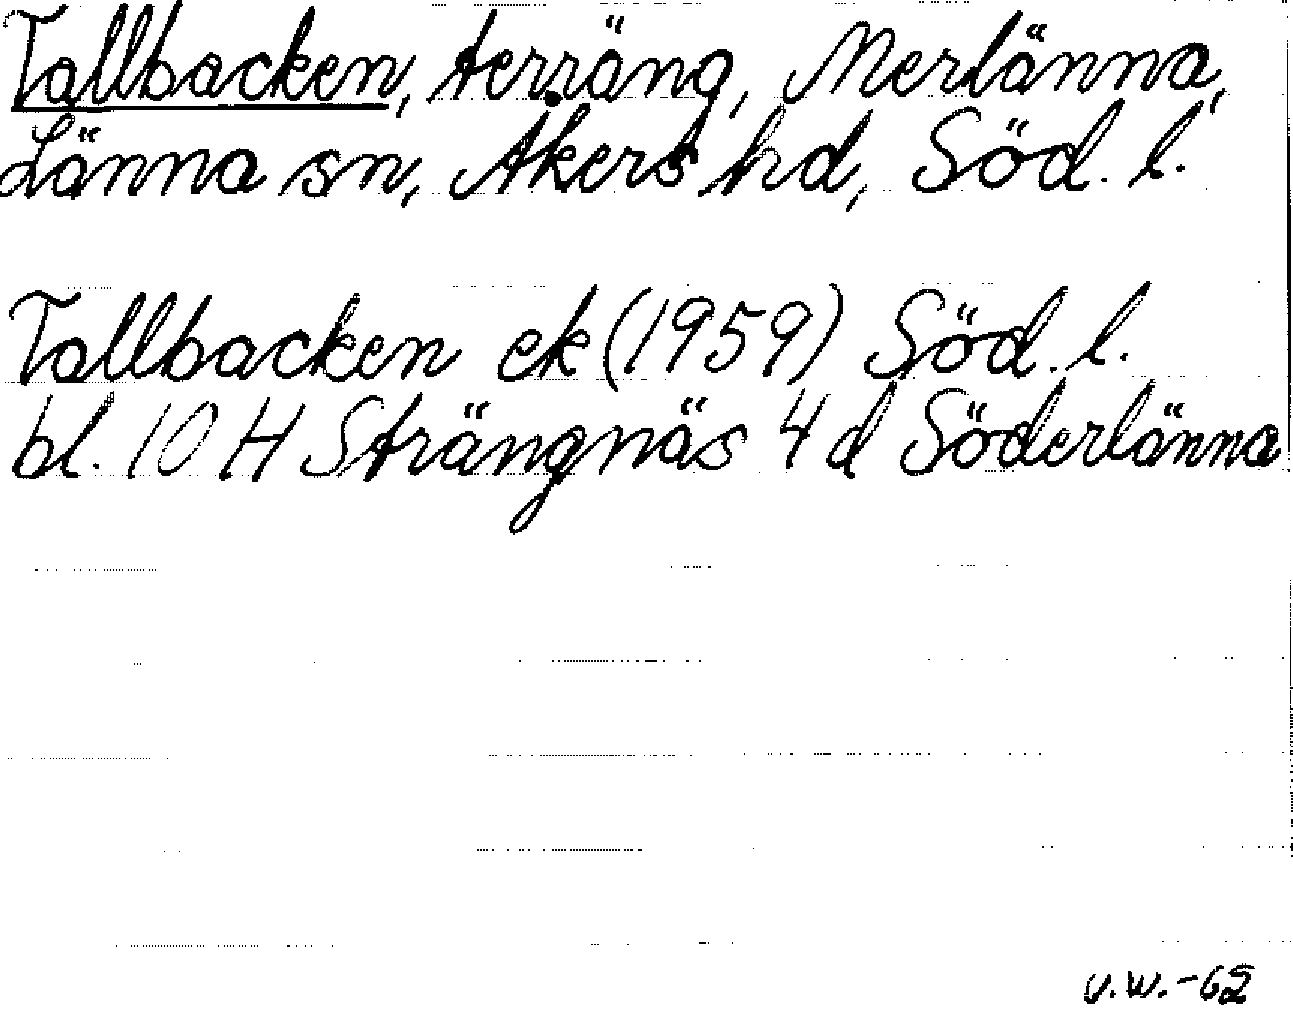 Tallbacken, terräng, Merlänna,
Länna sn, Åkers hd, Söd. l.
Tallbacken ek (1959) Söd. l.
bl. 10 H Strängnäs 4 d Söderlänna
v.w.-62